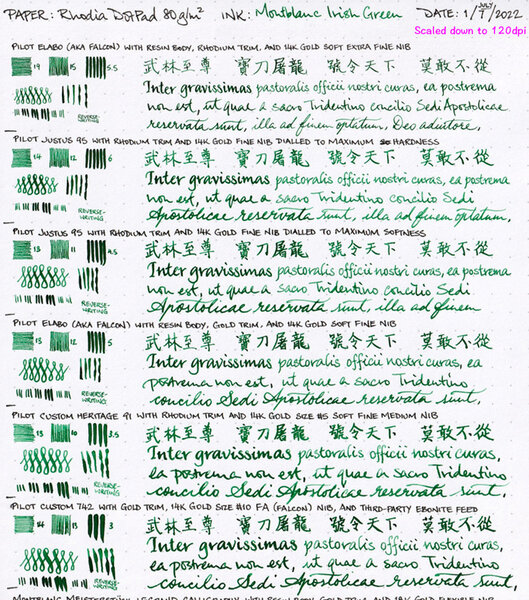 PAPER: Rhodia DotPad 80g/m² INK: Montblanc Irish Green DATE: 1/JULY/2022
Scaled down to 120dpi
PILOT ELABO (AKA FALCON) WITH RESIN BODY, RHODIUM TRIM, AND 14K GOLD SOFT EXTRA FINE NIB
19 15 5.5 武林至尊 寶刀屠龍 號令天下 莫敢不從
Inter gravissimas pastoralis officii nostri curas, ea postrema
non est, ut quae a sacro Tridentino concilio Sedi Apostolicae
REVERSE-WRITING reservata sunt, illa ad finem optatum, Deo adiutore,
PILOT JUSTUS 95 WITH RHODIUM TRIM AND 14K GOLD FINE NIB DIALLED TO MAXIMUM HARDNESS
14 12 6 武林至尊 寶刀屠龍 號令天下 莫敢不從
Inter gravissimas pastoralis officii nostri curas, ea postrema
non est, ut quae a sacro Tridentino concilio Sedi
REVERSE-WRITING Apostolicae reservata sunt, illa ad finem optatum,
PILOT JUSTUS 95 WITH RHODIUM TRIM AND 14K GOLD FINE NIB DIALLED TO MAXIMUM SOFTNESS
13 11 4.5 武林至尊 寶刀屠龍 號令天下 莫敢不從
Inter gravissimas pastoralis officii nostri curas, ea postrema
non est, ut quae a sacro Tridentino concilio Sedi
REVERSE-WRITING Apostolicae reservata sunt, illa ad finem
PILOT ELABO (AKA FALCON) WITH RESIN BODY, GOLD TRIM, AND 14K GOLD SOFT FINE NIB
15 12 5 武林至尊 寶刀屠龍 號令天下 莫敢不從
Inter gravissimas pastoralis officii nostri curas, ea
postrema non est, ut quae a sacro Tridentino
REVERSE-WRITING concilio Sedi Apostolicae reservata sunt,
PILOT CUSTOM HERITAGE 91 WITH RHODIUM TRIM AND 14K GOLD SIZE #5 SOFT FINE MEDIUM NIB
13 10 3.5 武林至尊 寶刀屠龍 號令天下 莫敢不從
Inter gravissimas pastoralis officii nostri curas,
ea postrema non est, ut quae a sacro Tridentino
REVERSE-WRITING concilio Sedi Apostolicae reservata sunt,
PILOT CUSTOM 742 WITH GOLD TRIM, 14K GOLD SIZE #10 FA (FALCON) NIB, AND THIRD-PARTY EBONITE FEED
14 13 3 武林至尊 寶刀屠龍 號令天下 莫敢不從
Inter gravissimas pastoralis officii nostri curas,
ea postrema non est, ut quae a sacro Tridentino
REVERSE-WRITING concilio Sedi Apostolicae reservata sunt,